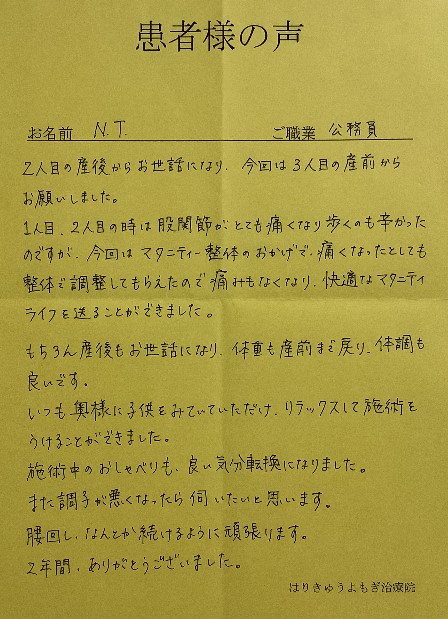 患者様の声
お名前 N.T. ご職業 公務員
2人目の産後からお世話になり、今回は3人目の産前から
お願いしました。
1人目、2人目の時は股関節がとても痛くなり歩くのも辛かった
のですが、今回はマタニティー整体のおかげで、痛くなったとしても
整体で調整してもらえたので痛みもなくなり、快適なマタニティ
ライフを送ることができました。
もちろん産後もお世話になり、体重も産前まで戻り、体調も
良いです。
いつも、奥様に子供をみていていただけ、リラックスして施術を
うけることができました。
施術中のおしゃべりも、良い気分転換になりました。
また調子が悪くなったら伺いたいと思います。
腰回し、なんとか続けるように頑張ります。
2年間、ありがとうございました。
はりきゅうよもぎ治療院